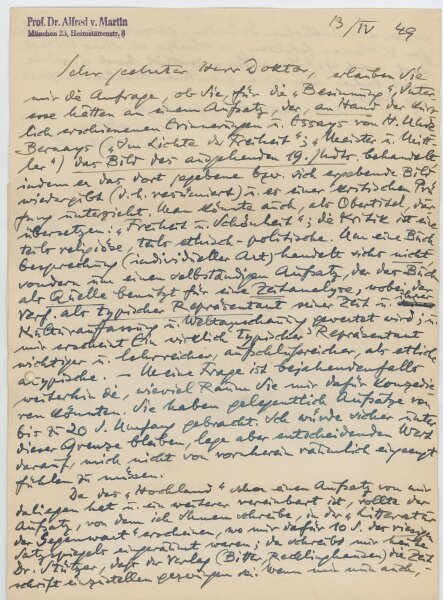 Prof. Dr. Alfred v. Martin
München 23, Heimstättenstr. 8
13/IV 49
Sehr geehrter Herr Doktor, erlauben Sie
mir die Anfrage, ob Sie, für die "Besinnung", Inter
esse hätten an einem Aufsatz, der, an Hand der kürz
lich erschienenen Erinnerungen u. Essays von H. Uhde
Bernays ("Im Lichte der Freiheit"; "Meister u. Mitt
ler") das Bild des ausgehenden 19. Jhdts. behandelt,
indem er das dort gegebene bzw. sich ergebende Bild
wiedergibt (d. h. resümiert) u. es einer kritischen Prü
fung unterzieht. Man könnte auch, als Obertitel, dar
übersetzen: "Freiheit u. Schönheit"; die Kritik ist eine
teils religiöse, teils ethisch-politische. Um eine Buch
besprechung (individueller Art) handelt sichs nicht
sondern um einen selbständigen Aufsatz, der das Buch
als Quelle benützt für eine Zeitanalyse, wobei der
Verf. als typischer Repräsentant seiner Zeit u.
Kulturauffassung u. Weltanschauung gewertet wird; u.
mir erscheint ein wirklich typischer Repräsentant
wichtiger u. lehrreicher, aufschlußreicher, als etlich
atypische. – Meine Frage ist bejahendenfalls
weiterhin die, wieviel Raum Sie mir dafür konzedie
ren könnten. Sie haben gelegentlich Aufsätze von
bis zu 20 S. Umfang gebracht. Ich würde sicher unter
dieser Grenze bleiben, lege aber entscheidenden Wert
darauf, mich nicht von vornherein räumlich eingeengt
fühlen zu müssen.
Da das "Hochland" schon einen Aufsatz von mir
daliegen hat u. ein weiterer vereinbart ist, sollte der
Aufsatz, von dem ich Ihnen schreibe, in der "Literatur
der Gegenwart" erscheinen, wo mir dafür 10 S. des
Satzspiegels eingeräumt waren; da schreibt mir heute
Dr. Stützer, daß der Verlag (Bitter Recklinghausen) die Zeit
schrift einzustellen gezwungen sei. Wenn mir nun auch,